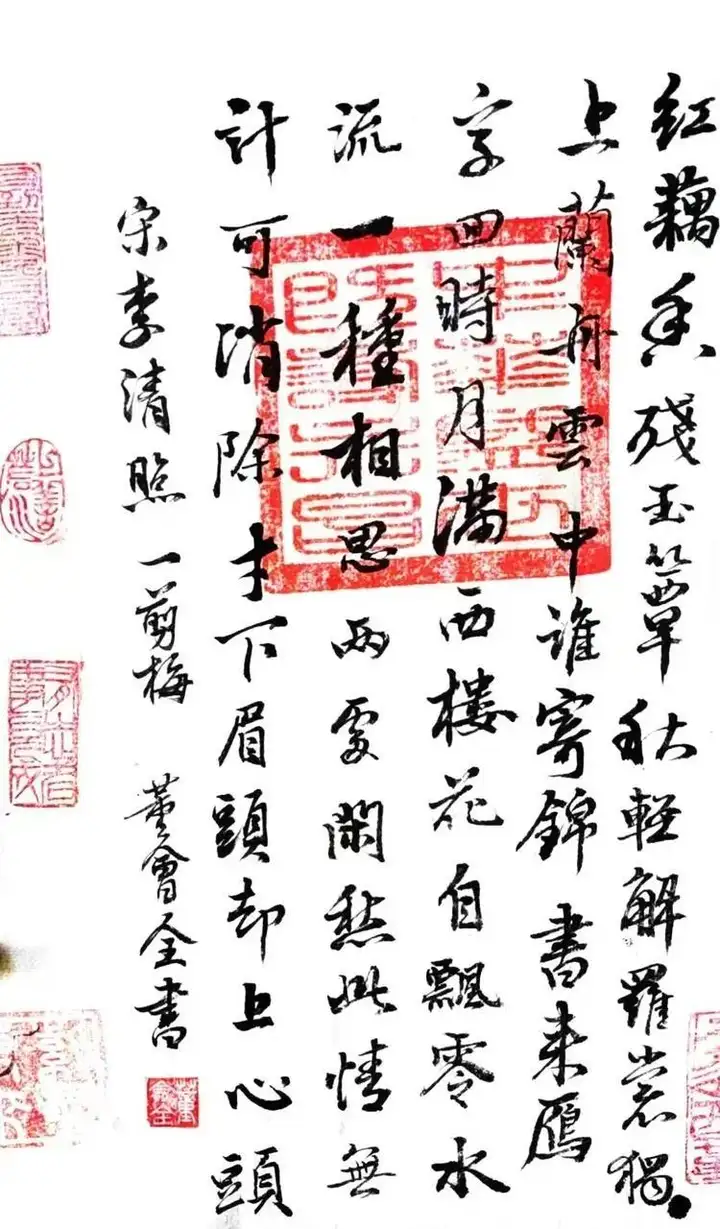 红藕香殘玉簟秋輕解羅裳獨
上蘭舟雲中誰寄錦書来鴈
字回時月满西樓花自飄零水
流一種相思兩處閑愁此情無
計可消除才下眉頭却上心頭
宋李清照 一剪梅 董會全書
董會全